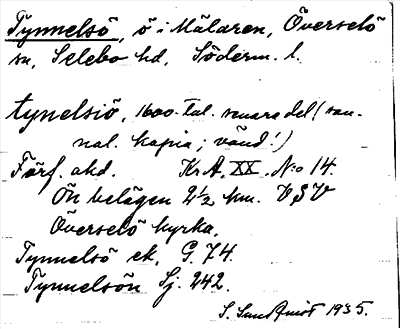 Tynnelsö, ö i Mälaren, Överselö
sn, Selebo hd, Söderm. l.
tynelsiö, 1600-tal. senare del (san-
nol. kopia; vänd!)
Förf. okd. Kr.A. XX. N:o 14.
Ön belägen 2½ km. VSV
Överselö kyrka.
Tynnelsö ek. G. 74.
Tynnelsön Sj. 242.
S. Sundqvist 1935.